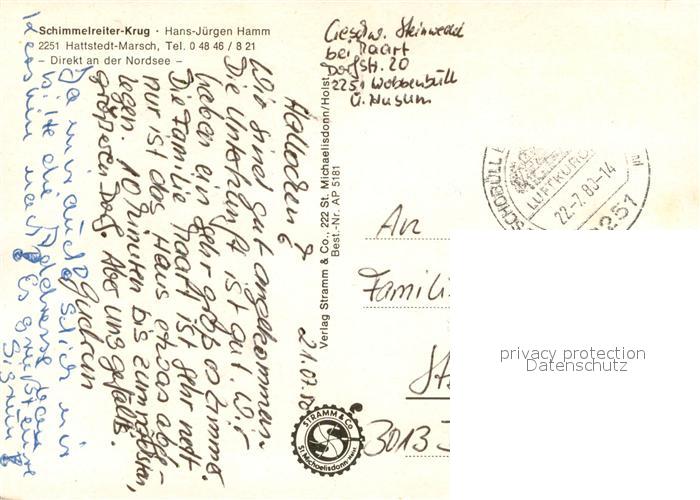 Schimmelreiter-Krug · Hans-Jürgen Hamm
2251 Hattstedt-Marsch, Tel. 0 48 46 / 8 21
– Direkt an der Nordsee –
Geschw. Steinwedel
bei Maart
Dorfstr. 20
2251 Wobbenbüll
ü. Husum
Verlag Stramm & Co., 222 St. Michaelisdonn/Holst.
Best.-Nr. AP 5181
21.07.
Hallöchen
Wir sind gut angekommen.
Die Unterkunft ist gut. Wir
haben ein sehr großes Zimmer.
Die Familie Maart ist sehr nett
nur ist das Haus etwas abge-
legen. 10 Minuten bis zum nächsten,
größeren Dorf. Aber uns gefällts.
Gudrun
bitte die Adresse
Es grüßt
LUFTKURO
22.-7.80-14
2251
An
Famili
3013
STRAMM & Co.
St. Michaelisdonn/Holst.
privacy protection
Datenschutz